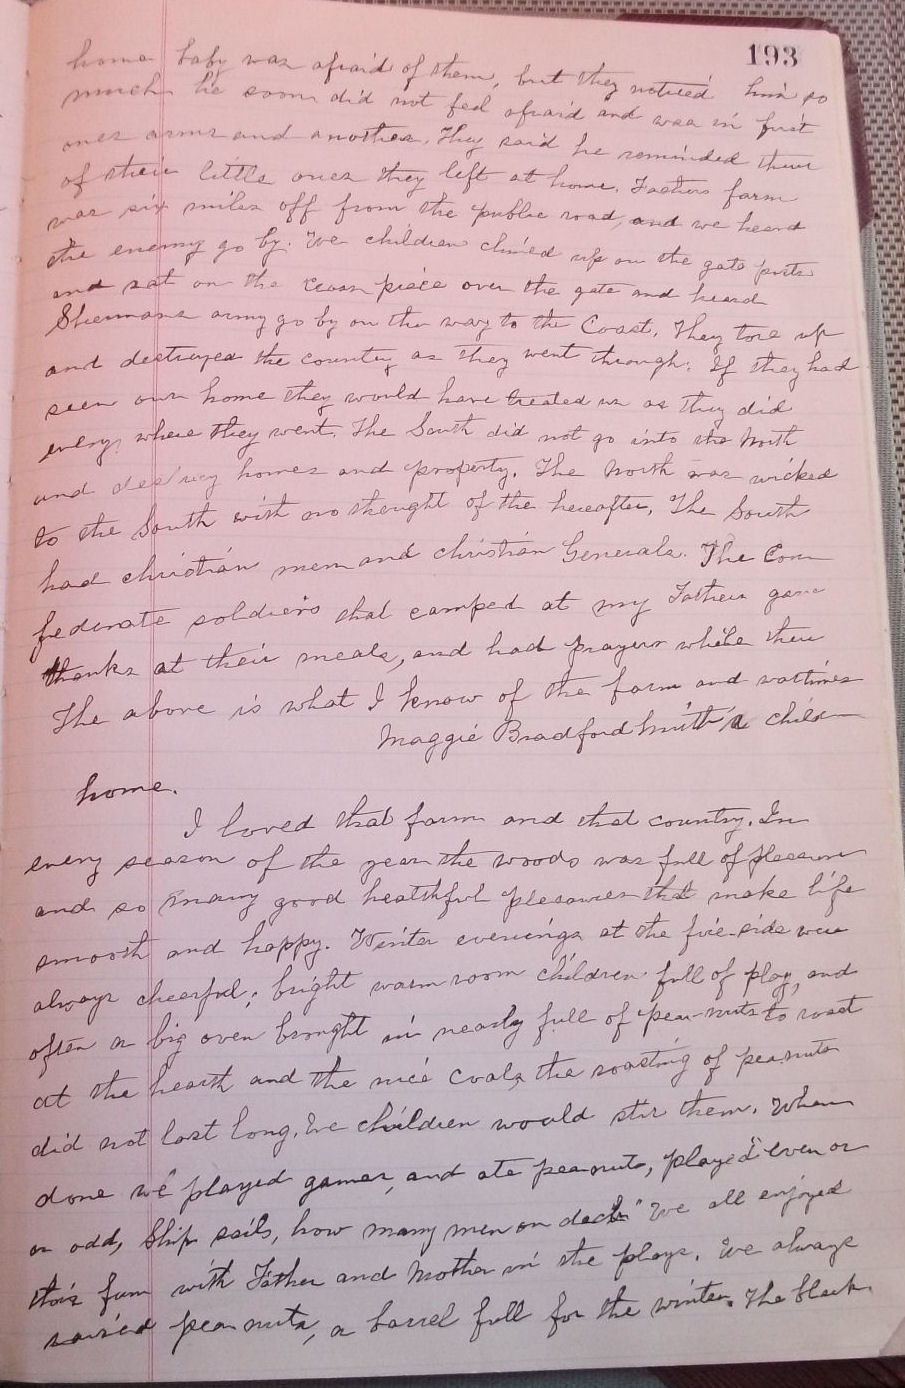 193
home baby was afraid of them, but they noticed him so
much he soon did not feel afraid and was in first
ones arms and another. They said he reminded them
of their little ones they left at home. Fathers farm
was six miles off from the public road, and we heard
the enemy go by. We children climed up on the gate posts
and sat on the cross piece over the gate and heard
Shermans army go by on the way to the Coast. They tore up
and destroyed the country as they went through. If they had
seen our home they would have treated us as they did
every where they went. The South did not go into the North
and destroy homes and property. The North was wicked
to the South with no thought of the hereafter. The South
had christian men and christian Generals. The Con
federate soldiers that camped at my Fathers gave
thanks at their meals, and had prayers while there
The above is what I know of the farm and wartimes
Maggie Bradford Smith's child
home.
I loved that farm and that country. In
every season of the year the woods was full of pleasure
and so many good healthful plesures that make life
smooth and happy. Winter evenings at the fire-side were
always cheerful; bright warm room children full of play, and
often a big oven brought in nearly full of pea-nuts to roast
at the hearth and the nice coals, the roasting of peanuts
did not last long. We children would stir them. When
done we played games, and ate peanuts, played "even or
or odd, Ship sails, how many men on deck" We all enjoyed
this fun with Father and Mother in the plays. We always
raised pea nuts, a barrel full for the winter. The black